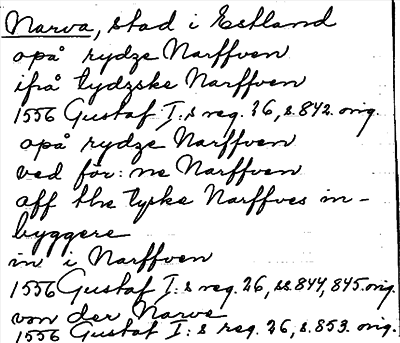 Narva, stad i Estland
opå rydze Narffven
ifrå tydzske Narffven
1556 Gustaf I:s reg. 26, s. 842. orig.
opå rydze Narffven
ved för:ne Narffven
aff the tyske Narffves in-
byggere
in i Narffven
1556 Gustaf I:s reg. 26, ss. 844, 845. orig.
von der Narve
1556 Gustaf I:s reg. 26, s. 853. orig.